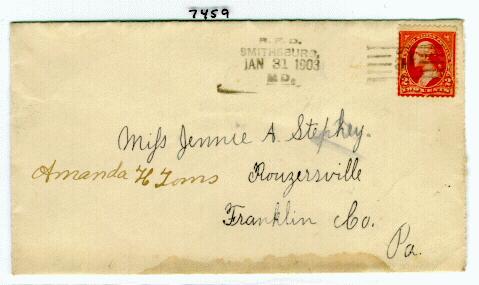 7459
R.F.D.
SMITHSBURG,
JAN 31 1903
MD.
2 TWO CENTS 2
Miss Jennie A. Stephey.
Amanda H Toms
Rouzersville
Franklin Co.
Pa.